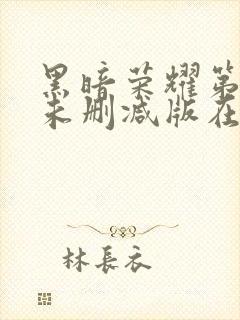 黑暗荣耀第
未删减版在
林長衣